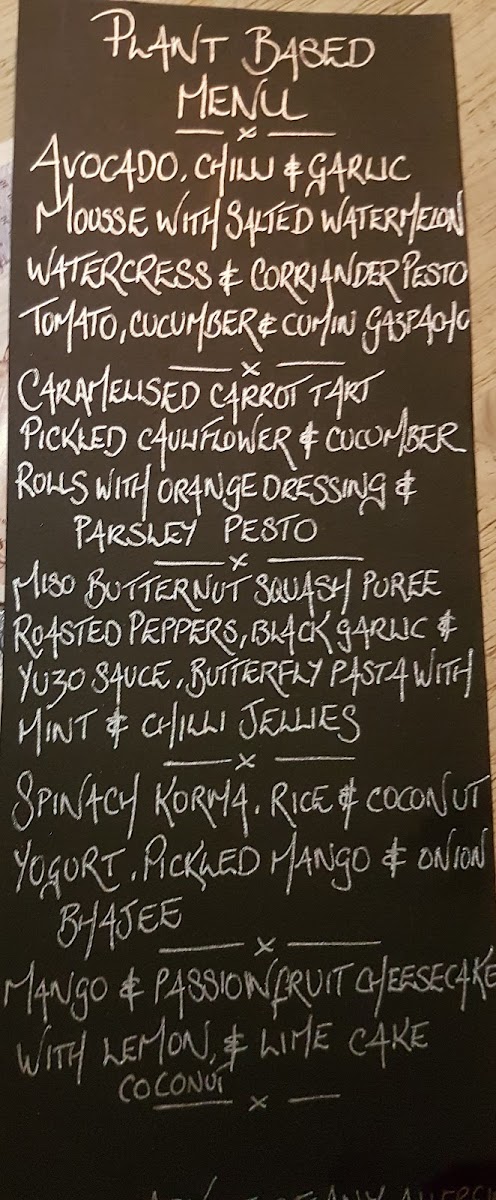 PLANT BASED
MENU
AVOCADO, CHILLI & GARLIC
MOUSSE WITH SALTED WATERMELON
WATERCRESS & CORRIANDER PESTO
TOMATO, CUCUMBER & CUMIN GAZPACHO
CARAMELISED CARROT TART
PICKLED CAULIFLOWER & CUCUMBER
ROLLS WITH ORANGE DRESSING &
PARSLEY PESTO
MISO BUTTERNUT SQUASH PUREE
ROASTED PEPPERS, BLACK GARLIC &
YUZO SAUCE, BUTTERFLY PASTA WITH
MINT & CHILLI JELLIES
SPINACH KORMA, RICE & COCONUT
YOGURT, PICKLED MANGO & ONION
BHAJEE
MANGO & PASSIONFRUIT CHEESECAKE
WITH LEMON, & LIME CAKE
COCONUT